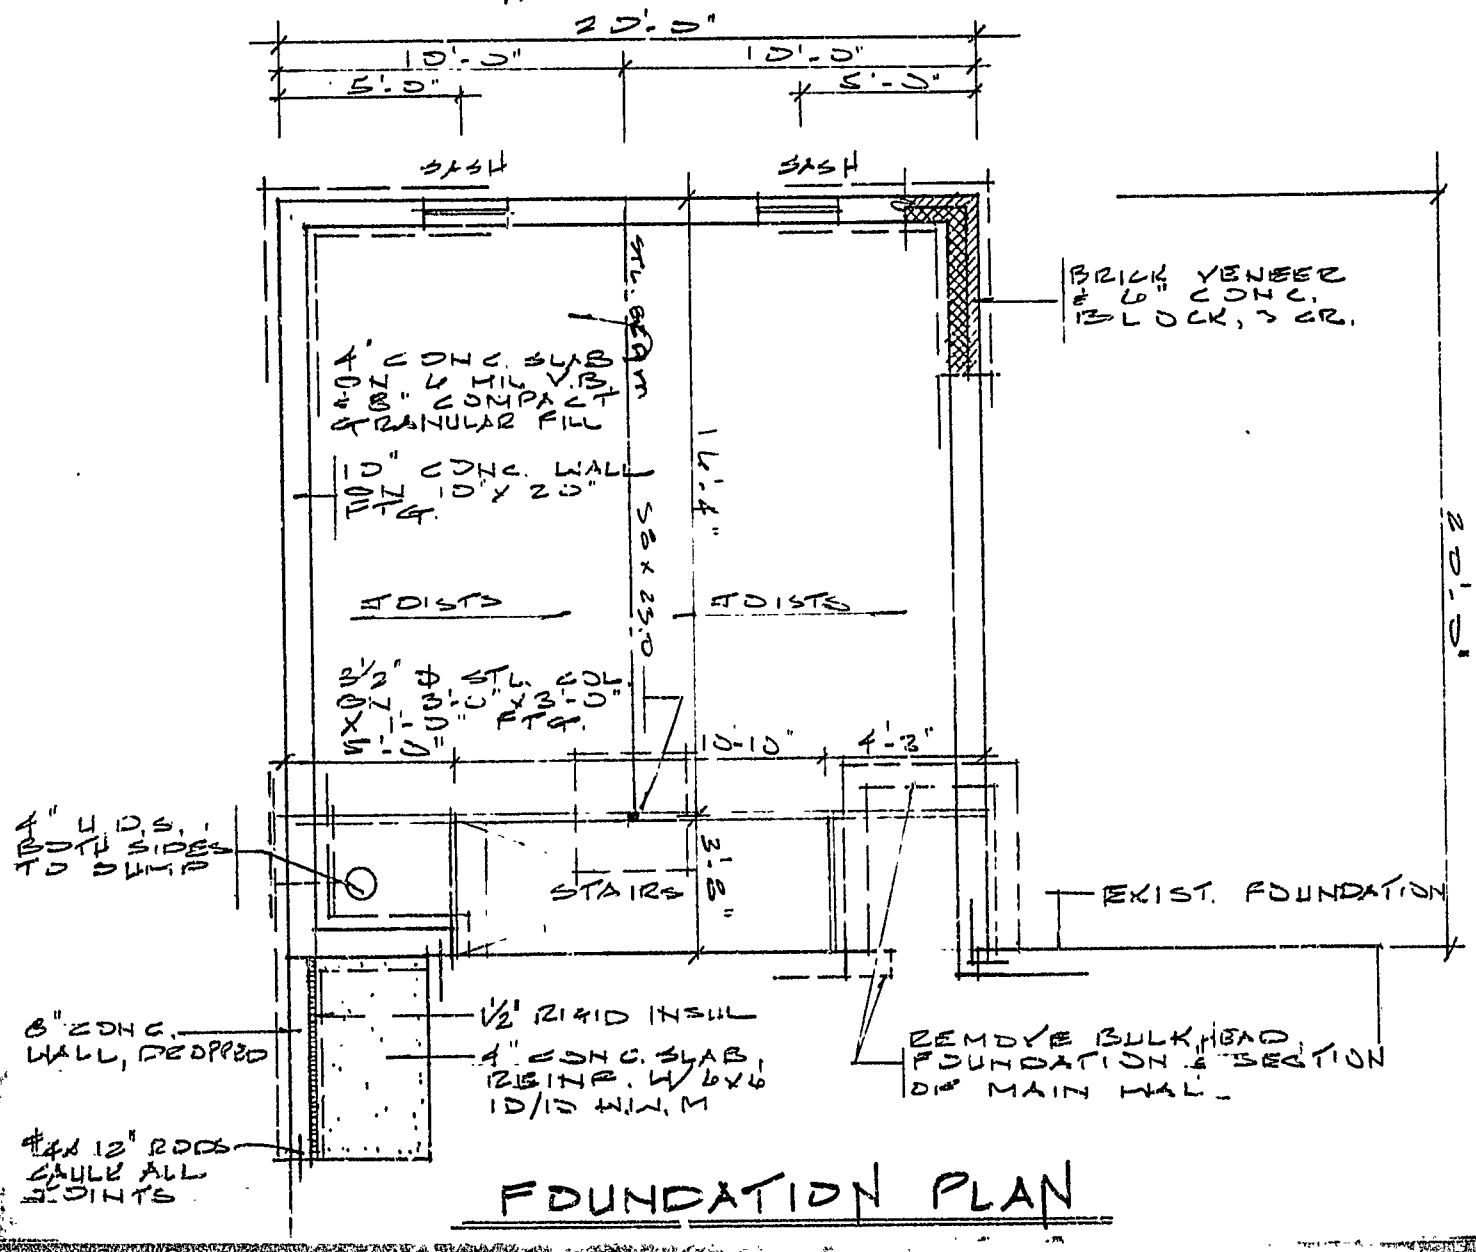 20'-0"
10'-0"
10'-0"
5'-0"
5'-0"
SASH
SASH
STL. BEAM
S8 x 23.0
BRICK VENEER
& 6" CONC.
BLOCK, 3 CR.
4" CONC. SLAB
ON 6 MIL V.B.
& 8" COMPACT
GRANULAR FILL
16'-4"
10" CONC. WALL
ON 10" X 20"
FTG.
20'-0"
JOISTS
JOISTS
3 1/2" Φ STL. COL.
ON 3'-0" X 3'-0"
X 1'-0" FTG.
5'-0"
10-10"
4'-2"
4" U.D.S.,
BOTH SIDES
TO SUMP
3'-8"
STAIRS
EXIST. FOUNDATION
8" CONC.
WALL, DROPPED
1/2" RIGID INSUL
4" CONC. SLAB,
REINF. W/ 6X6
10/10 W.W.M
REMOVE BULKHEAD
FOUNDATION & SECTION
OF MAIN WAL
#4 X 12" RODS
CAULK ALL
JOINTS
FOUNDATION PLAN